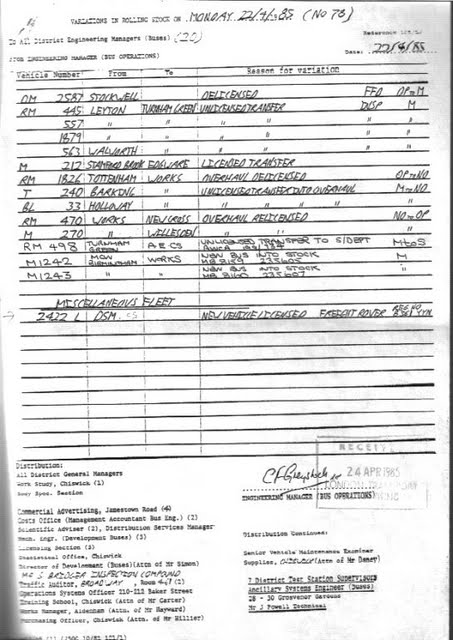 VARIATIONS IN ROLLING STOCK ON MONDAY 22/4/85 (No 78)
To All District Engineering Managers (Buses) (20)
FROM ENGINEERING MANAGER (BUS OPERATIONS)
Reference
Date: 22/4/85
Vehicle Number From To Reason for variation
DM 2587 STOCKWELL DELICENSED FFO OP to M
RM 445 LEYTON TURNHAM GREEN UNLICENSED TRANSFER DISP M
557 " " " " "
1879 " " " " "
563 WALWORTH " " "
M 212 STAMFORD BROOK EDGWARE LICENSED TRANSFER
RM 1826 TOTTENHAM WORKS OVERHAUL DELICENSED OP to NO
T 240 BARKING " UNLICENSED TRANSFER INTO OVERHAUL M to NO
BL 33 HOLLOWAY " " " " "
RM 470 WORKS NEW CROSS OVERHAUL RELICENSED NO to OP
M 270 " WILLESDEN " " "
RM 498 TURNHAM GREEN AECS UNLICENSED TRANSFER TO S/DEPT M to S
M1242 MCW BIRMINGHAM WORKS NEW BUS INTO STOCK M
MB 8159 235605
M1243 " " NEW BUS INTO STOCK "
MB 8160 235607
MISCELLANEOUS FLEET
2422 L DSM. CS NEW VEHICLE LICENSED FREIGHT ROVER REG NO
Distribution:
All District General Managers
Work Study, Chiswick (1)
Body Spec. Section
RECEIVED
24 APR 1985
ENGINEERING MANAGER (BUS OPERATIONS)
Commercial Advertising, Jamestown Road (4)
Costs Office (Management Accountant Bus Eng.) (2)
Scientific Adviser (2), Distribution Services Manager
Mech. Engr. (Development Buses) (3)
Licensing Section (3)
Statistical Office, Chiswick
Director of Development (Buses)(Attn of Mr Simon)
MR S BRIDGER INSPECTION COMPOUND
Traffic Auditor, BROADWAY, Room 447 (1)
Operations Systems Officer 210-212 Baker Street
Training School, Chiswick (Attn of Mr Carter)
Works Manager, Aldenham (Attn of Mr Hayward)
Purchasing Office, Chiswick, (Attn of Mr Hillier)
Distribution Continued:
Senior Vehicle Maintenance Examiner
Supplies, CHISWICK (Attn of Mr Daney)
7 District Test Station Supervisors
Ancillary Systems Engineer (Buses)
28 - 30 Grosvenor Gardens
Mr J Powell Technical